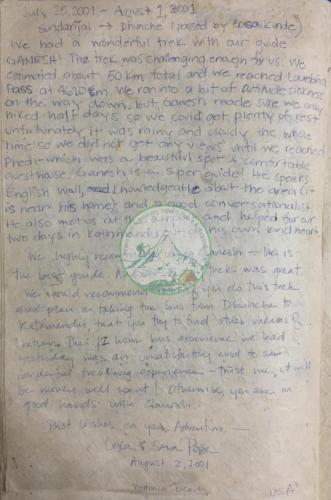 July 25, 2001 - August 1, 2001
Sundarijal → Dhunche (passed by Gosaikunde)
We had a wonderful trek with our guide
GANESH! The trek was challenging enough for us. We
estimated about 50 km total and we reached Laurebina
Pass at 4610 m. We ran into a bit of altitude sickness
on the way down, but Ganesh made sure we only
hiked half days so we could get plenty of rest.
Unfortunately it was rainy and cloudy the whole
time so we did not get any views until we reached
which was a beautiful spot & comfortable
guesthouse. Ganesh is a super guide! He speaks
English well, knowledgeable about the area (it
is near his home), and a good conversationalist.
He also met us at the and helped for our
two days in Kathmandu out of his own kind heart.
We highly recommend Ganesh – he is
the best guide. trek was great.
We would recommend if you do this trek
and plan on taking the bus from Dhunche to
Kathmandu, that you try to find other means of
return. The 12 hour bus experience we had
yesterday was an unsatisfactory end to such
wonderful trekking experience – trust me, it will
be money well spent! Otherwise, you are in
good hands with Ganesh.
Best Wishes on your Adventure —
& Sara
August 2, 2001
Virginia Beach, USA